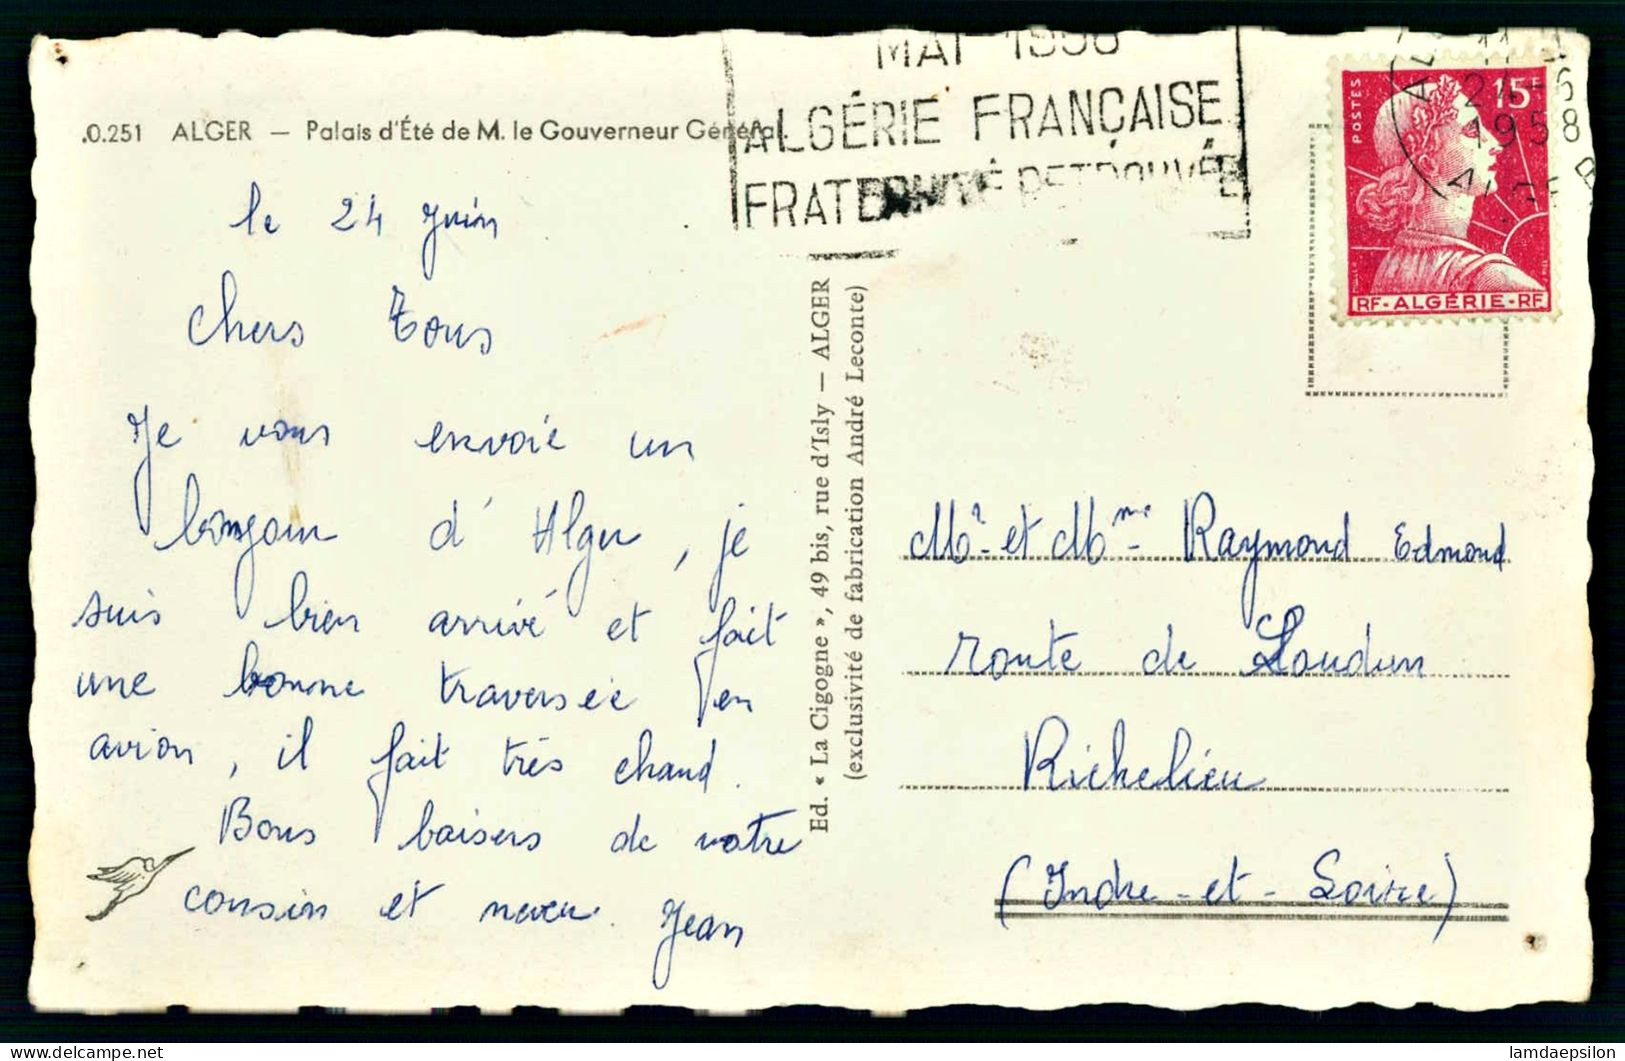 .0.251 ALGER — Palais d'Été de M. le Gouverneur Général.
MAI 1958
ALGÉRIE FRANÇAISE
FRATERNITÉ RETROUVÉE
24-6
1958
POSTES
15F
RF-ALGÉRIE-RF
le 24 Juin
Chers Tous
Je vous envoie un
bonjour d'Alger, je
suis bien arrivé et fait
une bonne traversée en
avion, il fait très chaud.
Bons baisers de votre
cousin et neveu. Jean
Ed. « La Cigogne », 49 bis, rue d'Isly — ALGER
(exclusivité de fabrication André Leconte)
Mr et Mme Raymond Edmond
route de Loudun
Richelieu
(Indre-et-Loire)
lamdaepsilon
delcampe.net